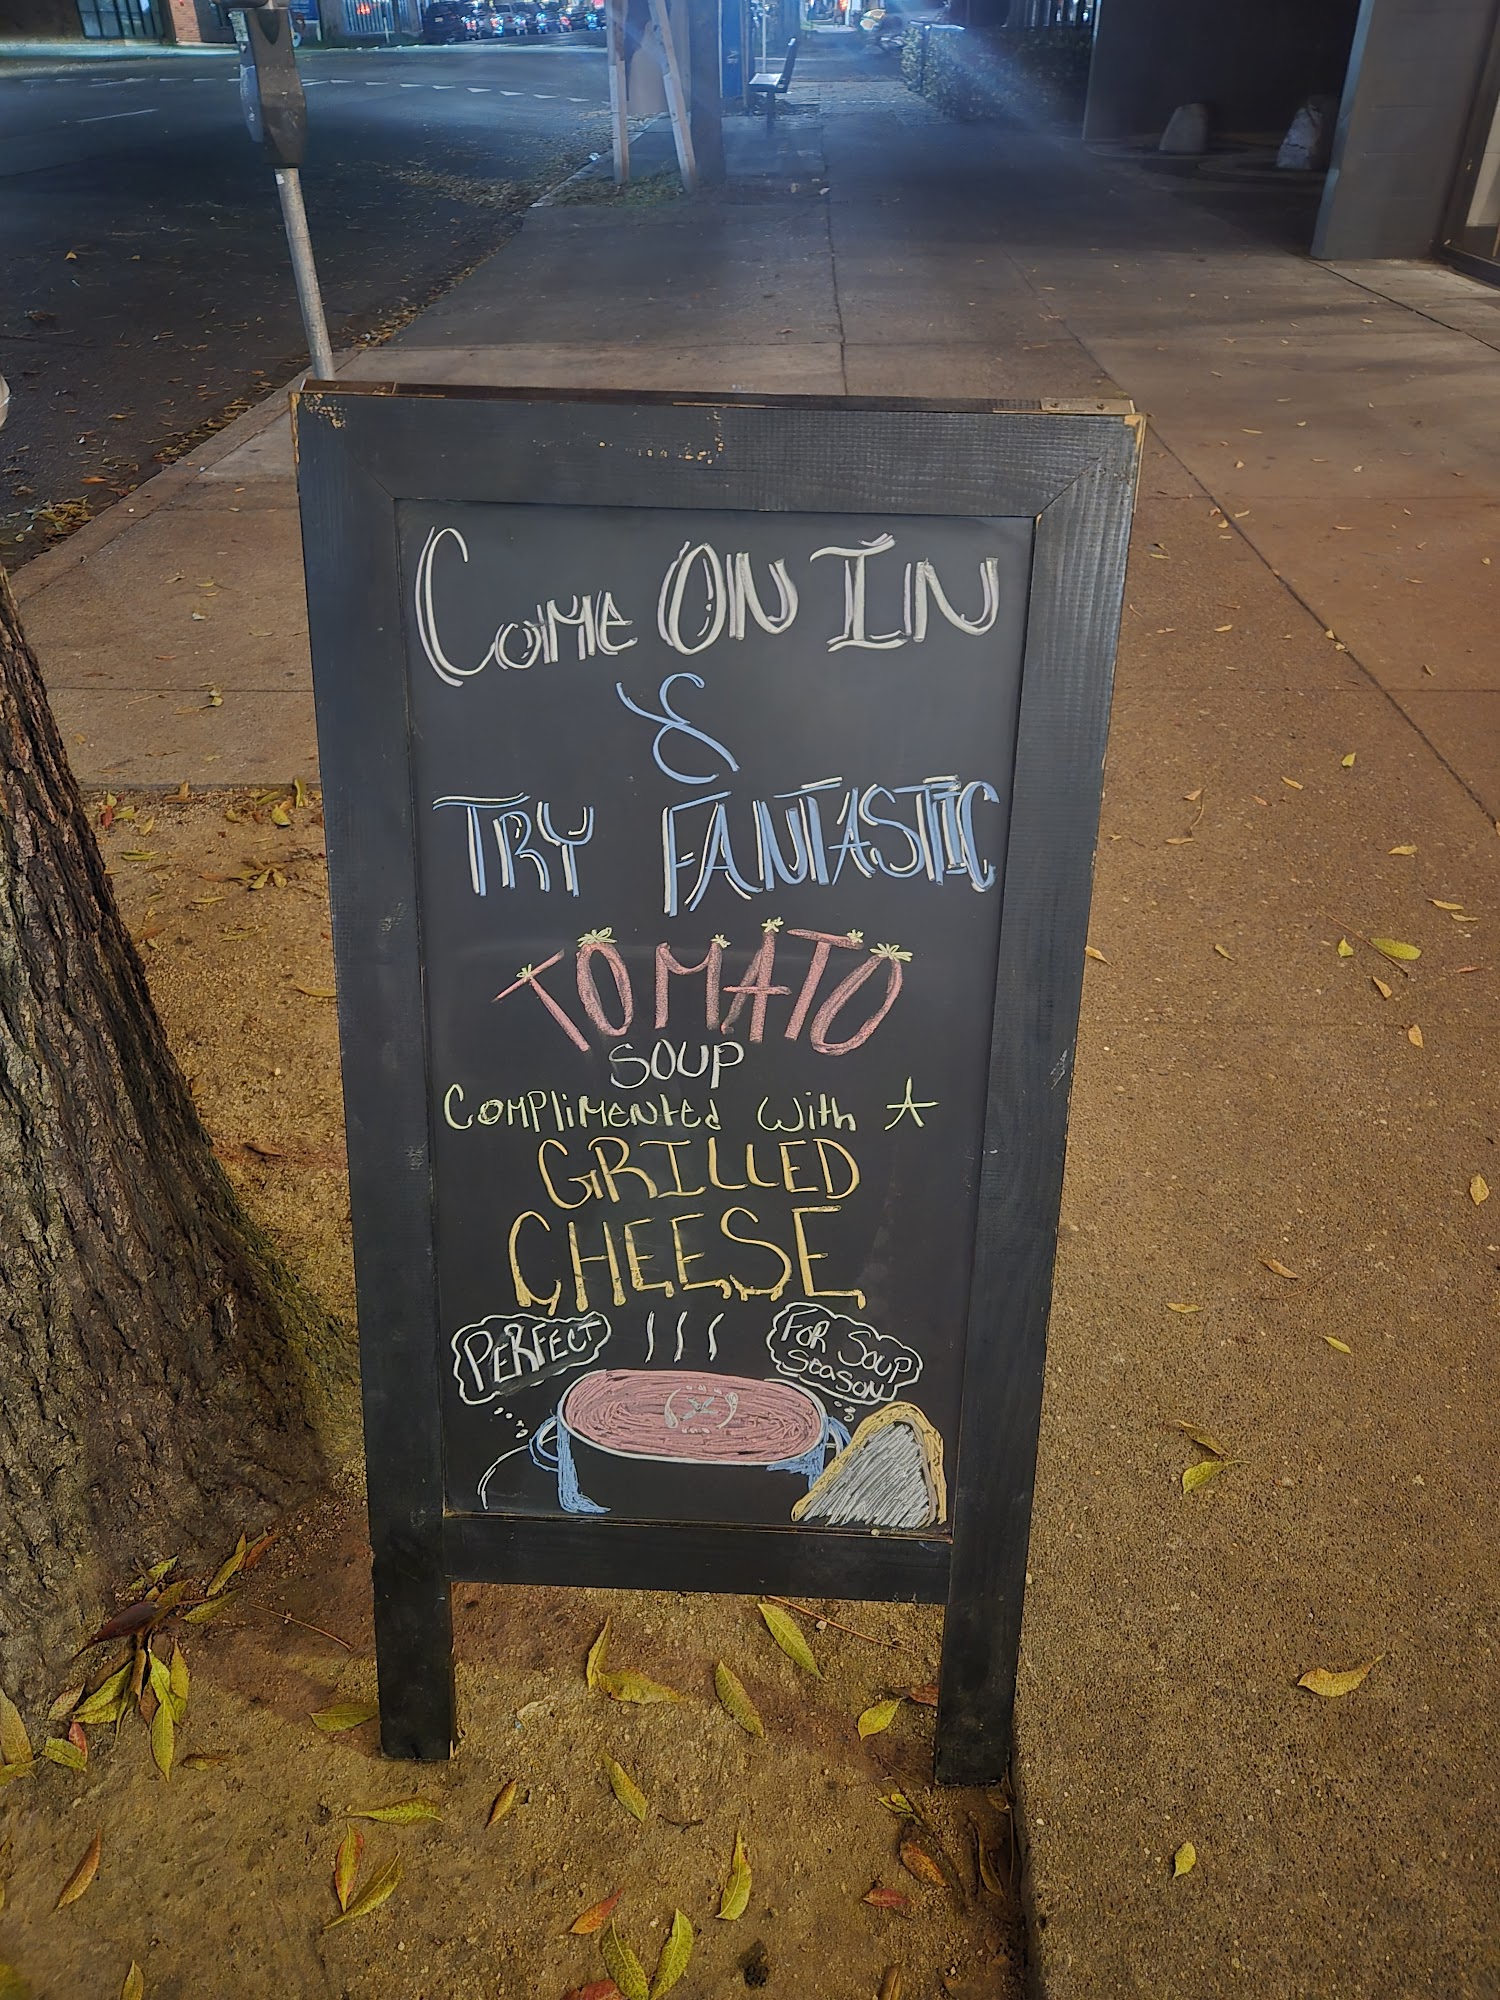 Come ON IN
&
TRY FANTASTIC
TOMATO
SOUP
Complimented with A
GRILLED
CHEESE
PERFECT
FOR SOUP
SeaSON